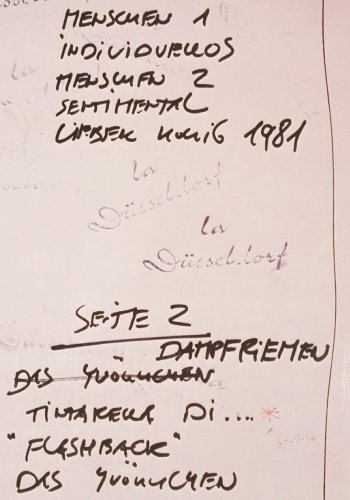 MENSCHEN 1
INDIVIDUELLOS
MENSCHEN 2
SENTIMENTAL
LIEBER HONIG 1981
la
Düsseldorf
la
Düsseldorf
SEITE 2
DAMPFRIEMEN
DAS YVÖNNCHEN
TINTARELLA DI....*
"FLASHBACK"
DAS YVÖNNCHEN